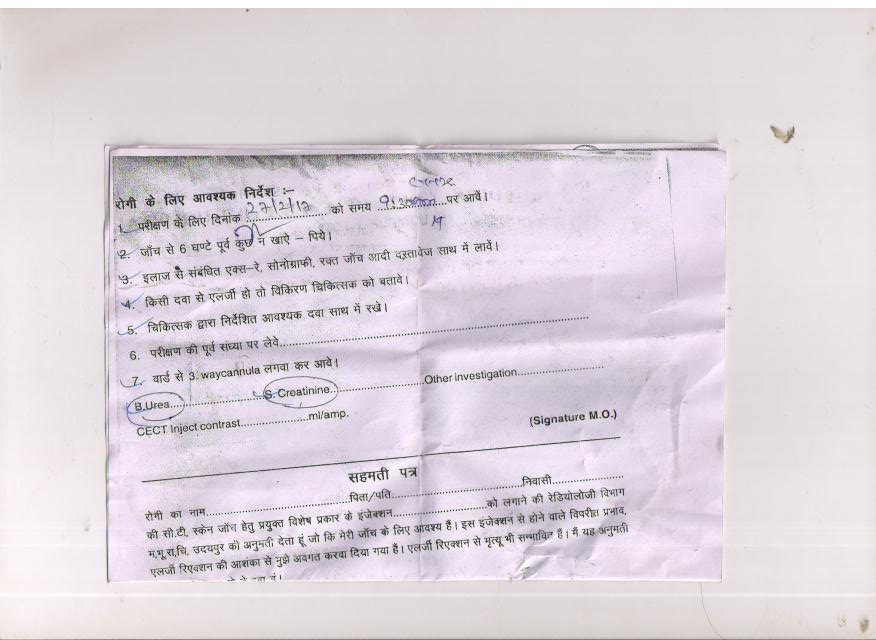 रोगी के लिए आवश्यक निर्देश :–
1. परीक्षण के लिए दिनांक 27/2/17 को समय 9:30 पर आवें।
2. जाँच से 6 घण्टे पूर्व कुछ न खाऐ – पिये।
3. इलाज से संबंधित एक्स–रे, सोनोग्राफी, रक्त जाँच आदी दस्तावेज साथ में लावें।
4. किसी दवा से एलर्जी हो तो विकिरण चिकित्सक को बतावे।
5. चिकित्सक द्वारा निर्देशित आवश्यक दवा साथ में रखे।
6. परीक्षण की पूर्व संध्या पर लेवे....................
7. वार्ड से 3. waycannula लगवा कर आवे।
B.Urea.................... S. Creatinine....................Other investigation....................
CECT Inject contrast....................ml/amp.
(Signature M.O.)
सहमती पत्र
रोगी का नाम....................पिता/पति....................निवासी....................
की सी.टी. स्केन जाँच हेतु प्रयुक्त विशेष प्रकार के इंजेक्शन....................को लगाने की रेडियोलोजी विभाग
म.भू.रा.चि. उदयपुर की अनुमती देता हूं जो कि मेरी जाँच के लिए आवश्य है। इस इंजेक्शन से होने वाले विपरीत प्रभाव,
एलर्जी रिएक्शन की आशंका से मुझे अवगत करवा दिया गया है। एलर्जी रिएक्शन से मृत्यू भी सम्भावित है। मैं यह अनुमती